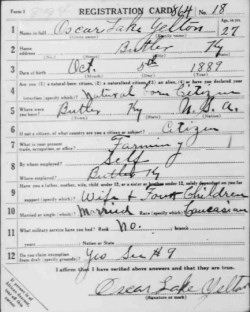 Form 1
REGISTRATION CARD
No. 18
1 Name in full Oscar Lake Yelton
Age, in yrs. 27
2 Home address Butler Ky
3 Date of birth Oct. 1889
4 Are you (1) a natural-born citizen, (2) a naturalized citizen, (3) an alien, (4) or have you declared your intention (specify which)? Natural Born Citizen
5 Where were you born? Butler Ky U.S.A.
6 If not a citizen, of what country are you a citizen or subject? Citizen
7 What is your present trade, occupation, or office? Farming
8 By whom employed? Self
Where employed? Butler Ky
9 Have you a father, mother, wife, child under 12, or a sister or brother under 12, solely dependent on you for support (specify which)? Wife & Four Children
10 Married or single (which)? Married Race (specify which)? Caucasian
11 What military service have you had? Rank No.
years Nation or State
12 Do you claim exemption from draft (specify grounds)? Yes See #9
I affirm that I have verified above answers and that they are true.
Oscar Lake Yelton
(Signature or mark)